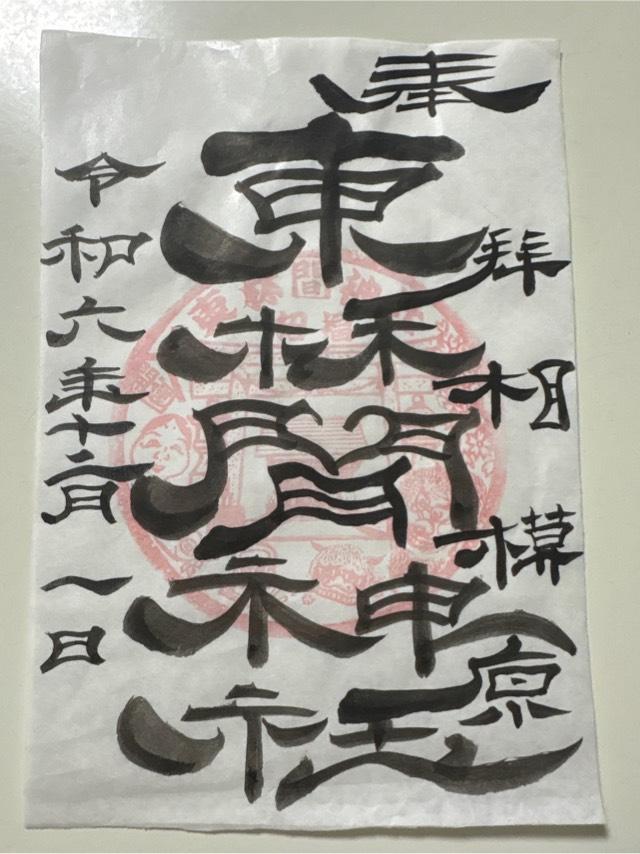 奉拝　相模原
東林間神社
令和六年十二月一日